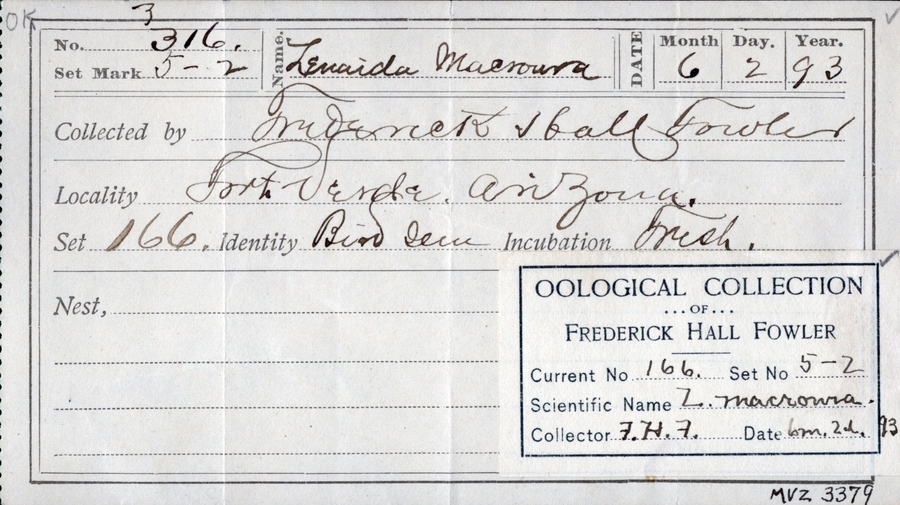 OK 3
No. 316. Name. Zenaida Macroura DATE Month 6 Day. 2 Year. 93
Set Mark 5-2
Collected by Frederick Hall Fowler
Locality Fort Verde. Arizona.
Set 166. Identity Bird seen Incubation Fresh.
Nest,
OOLOGICAL COLLECTION
...OF...
FREDERICK HALL FOWLER
Current No 166. Set No 5-2
Scientific Name Z. macroura.
Collector F.H.F. Date 6m. 2d. 93
MVZ 3379